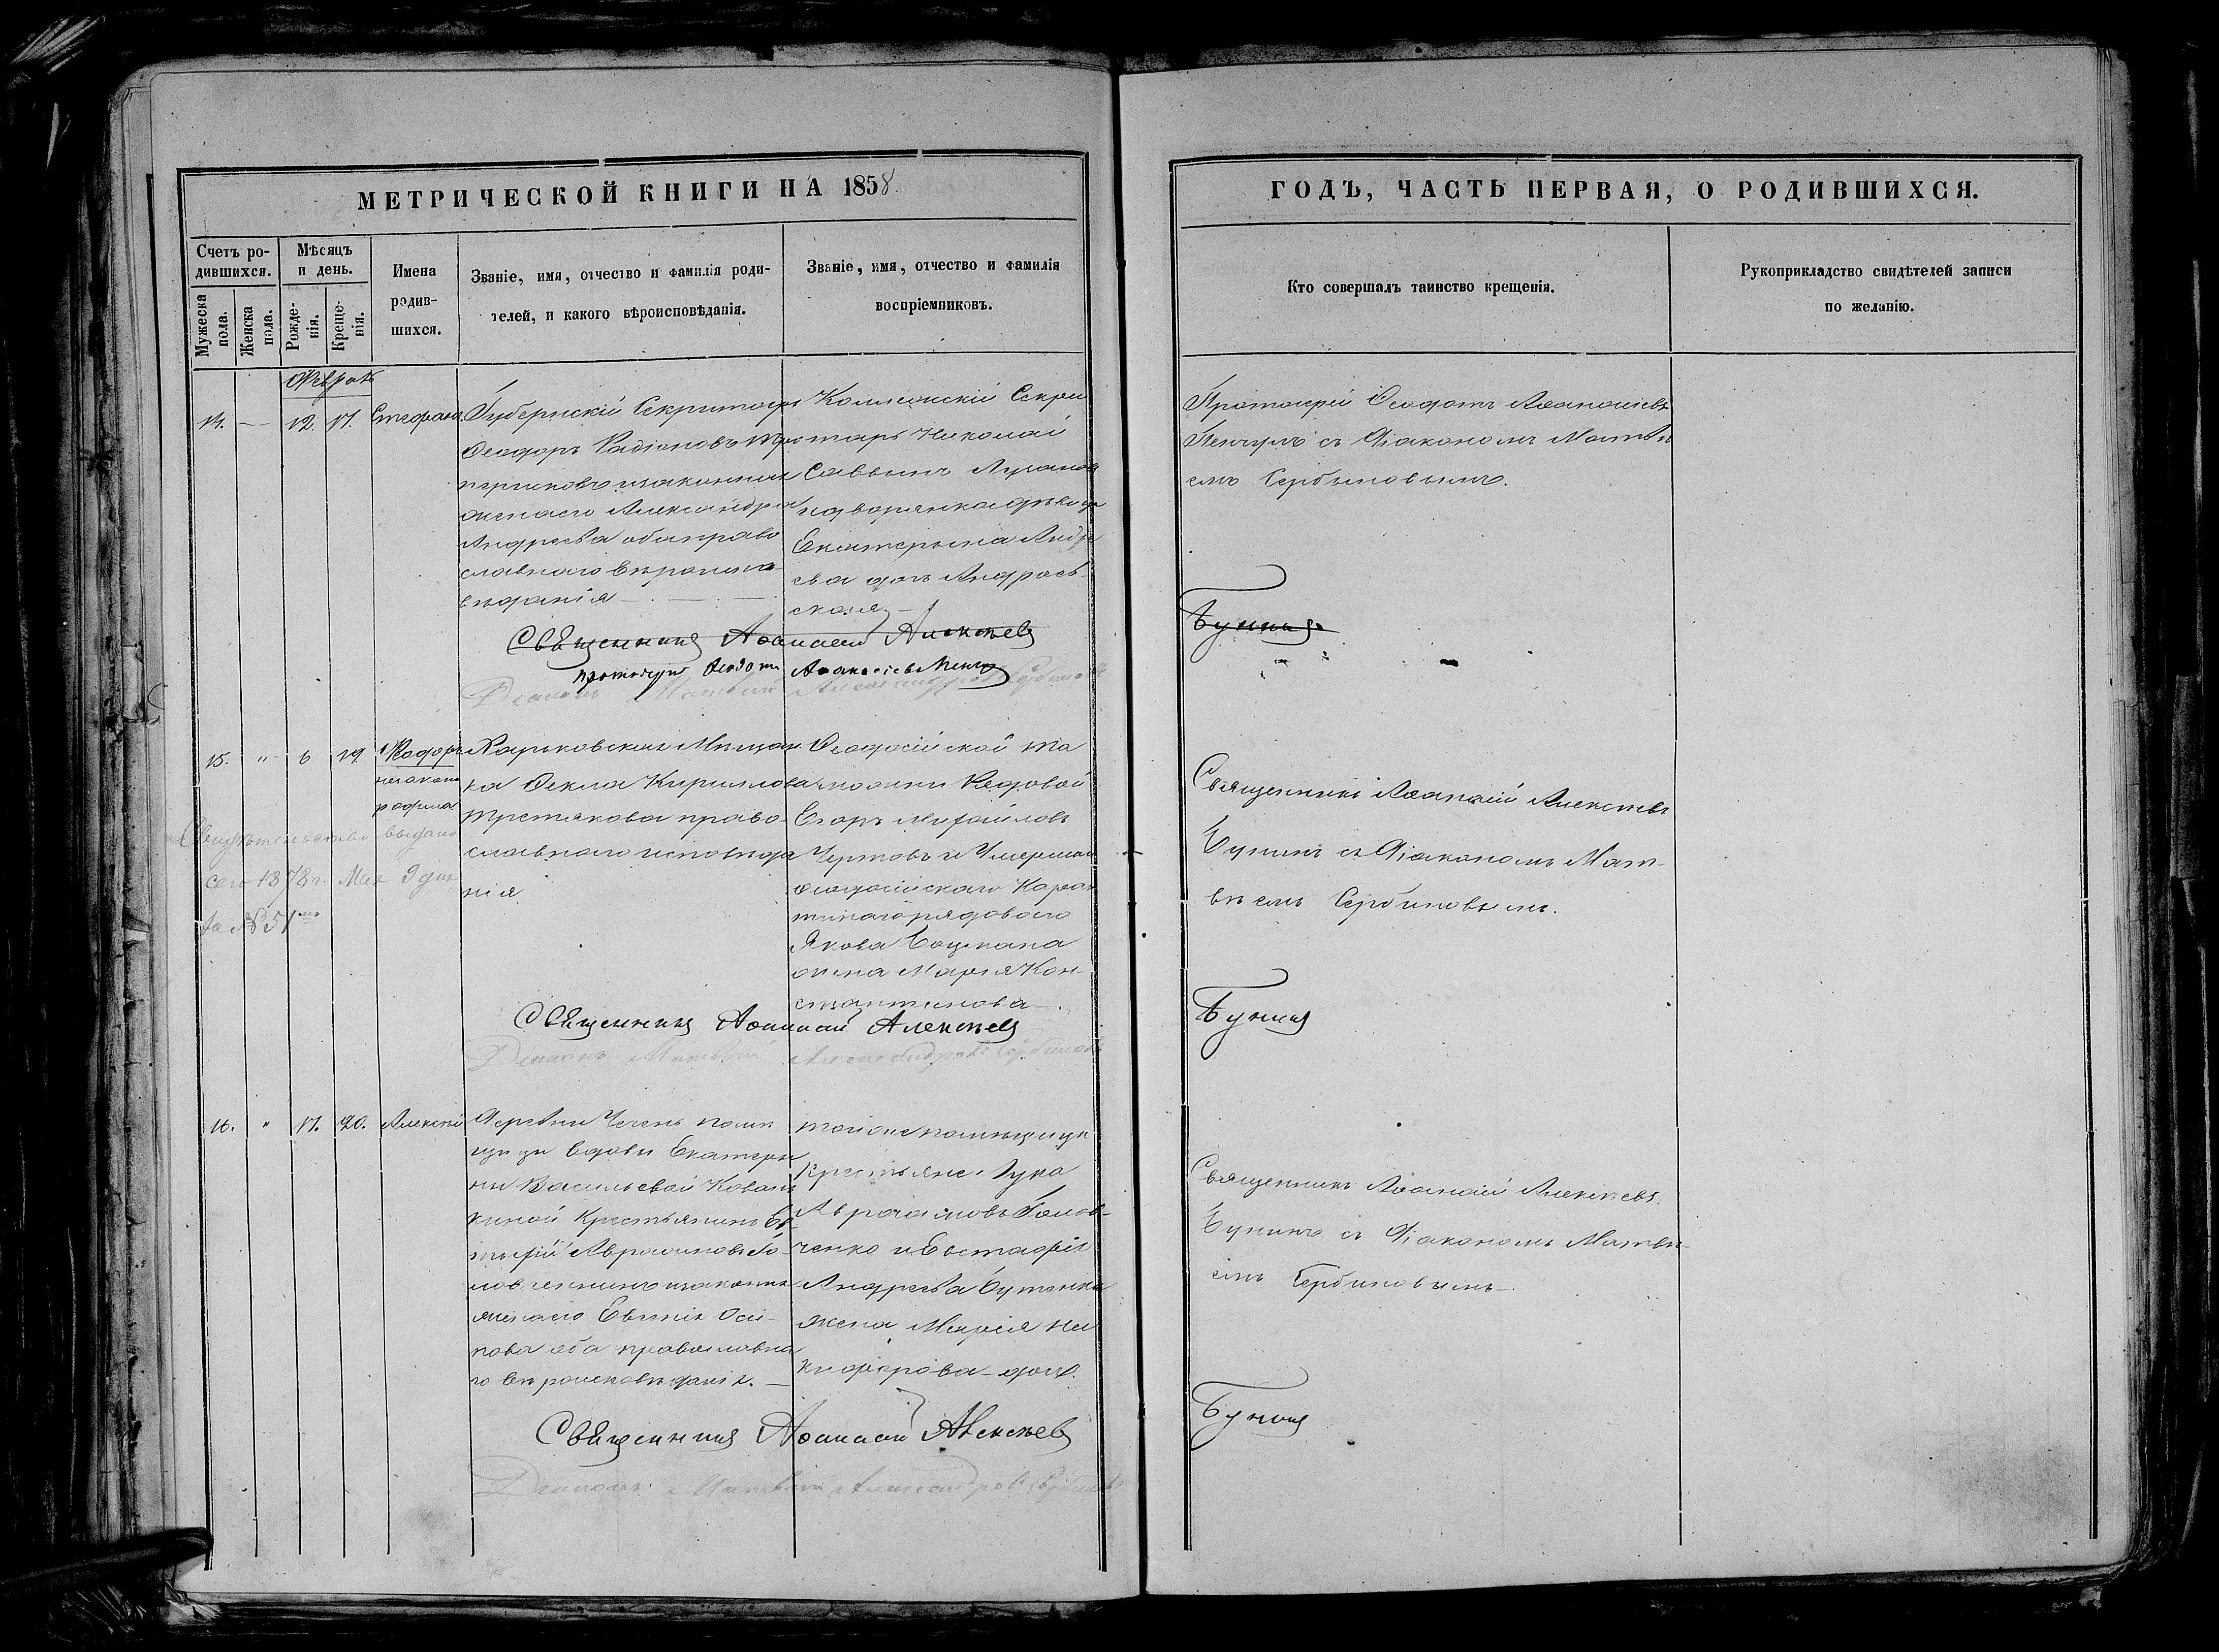 МЕТРИЧЕСКОЙ КНИГИ НА 1858
ГОДЪ, ЧАСТЬ ПЕРВАЯ, О РОДИВШИХСЯ.
Счетъ ро-
дившихся.
Мужеска
пола.
Женска
пола.
Мѣсяцъ
и день.
Рожде-
нія.
Креще-
нія.
Имена
родив-
шихся.
Званіе, имя, отчество и фамилія роди-
телей, и какого вѣроисповѣданія.
Званіе, имя, отчество и фамилія
воспріемниковъ.
Кто совершалъ таинство крещенія.
Рукоприкладство свидѣтелей записи
по желанію.
14. 12. 17. Стефанъ
Губернскій Секритарь
Ѳеодоръ Радіоновъ
изаконная
жена его Александра
Андреева оба право
славнаго вѣроиспо
вѣданія
Секри
тарь Николай
Саввинъ
идворянка дѣвица
Екатерына Андре
ева дочь
ская
Протоіерей Ѳеодотъ Аѳанасіевъ
съ Діакономъ Матвѣ
емъ Сербыновымъ.
Священникъ Аѳанасій Алексѣевъ
Бунинъ
протоіерей Ѳеодотъ Аѳанасіевъ
Діаконъ Матвѣй Александровъ Сербиновъ
15. " 6 19. Ѳеодоръ
незакон
рожден
Харьковская Мѣщан
ка Ѳекла Кириллова
Третякова право
славнаго исповѣда
нія
Ѳеодосійской та
можни Рядовой
Егоръ Михайловъ
Чертовъ и Умершаго
ѳеодосійскаго Каран
тиннаго рядоваго
Якова
жена Марія Кон-
стантинова
Свидѣтельство выдано
сего 1878 г. Мая 9 дня
за № 51
Священникъ Аѳанасій Алексѣевъ
Бунинъ съ Діакономъ Мат-
вѣемъ Сербиновымъ.
Священникъ Аѳанасій Алексѣевъ
Бунинъ
Діаконъ Матвѣй Александровъ Сербиновъ
16. " 17. 20. Алексѣй
Деревни помѣ
щицы вдовы Екатеры
ны Васильевой
Крестьянинъ Ев-
Аврамовъ Го-
изаконная
жена его Евгенія Оси-
пова оба православна
го вѣроисповѣданія.
тойже помѣщицы
Крестьяне Лука
Аврамовъ Голов-
ченко и Евстафія
Андреева Бутенка
жена Марія Ни
кифорова дочь.
Священникъ Аѳанасій Алексѣевъ
Бунинъ съ Діакономъ Матвѣ-
емъ Сербиновымъ.
Священникъ Аѳанасій Алексѣевъ
Бунинъ
Діаконъ Матвѣй Александровъ Сербиновъ